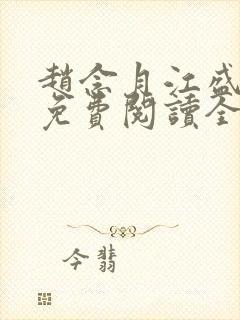 趙念月江盛
免費閱讀全
今翡